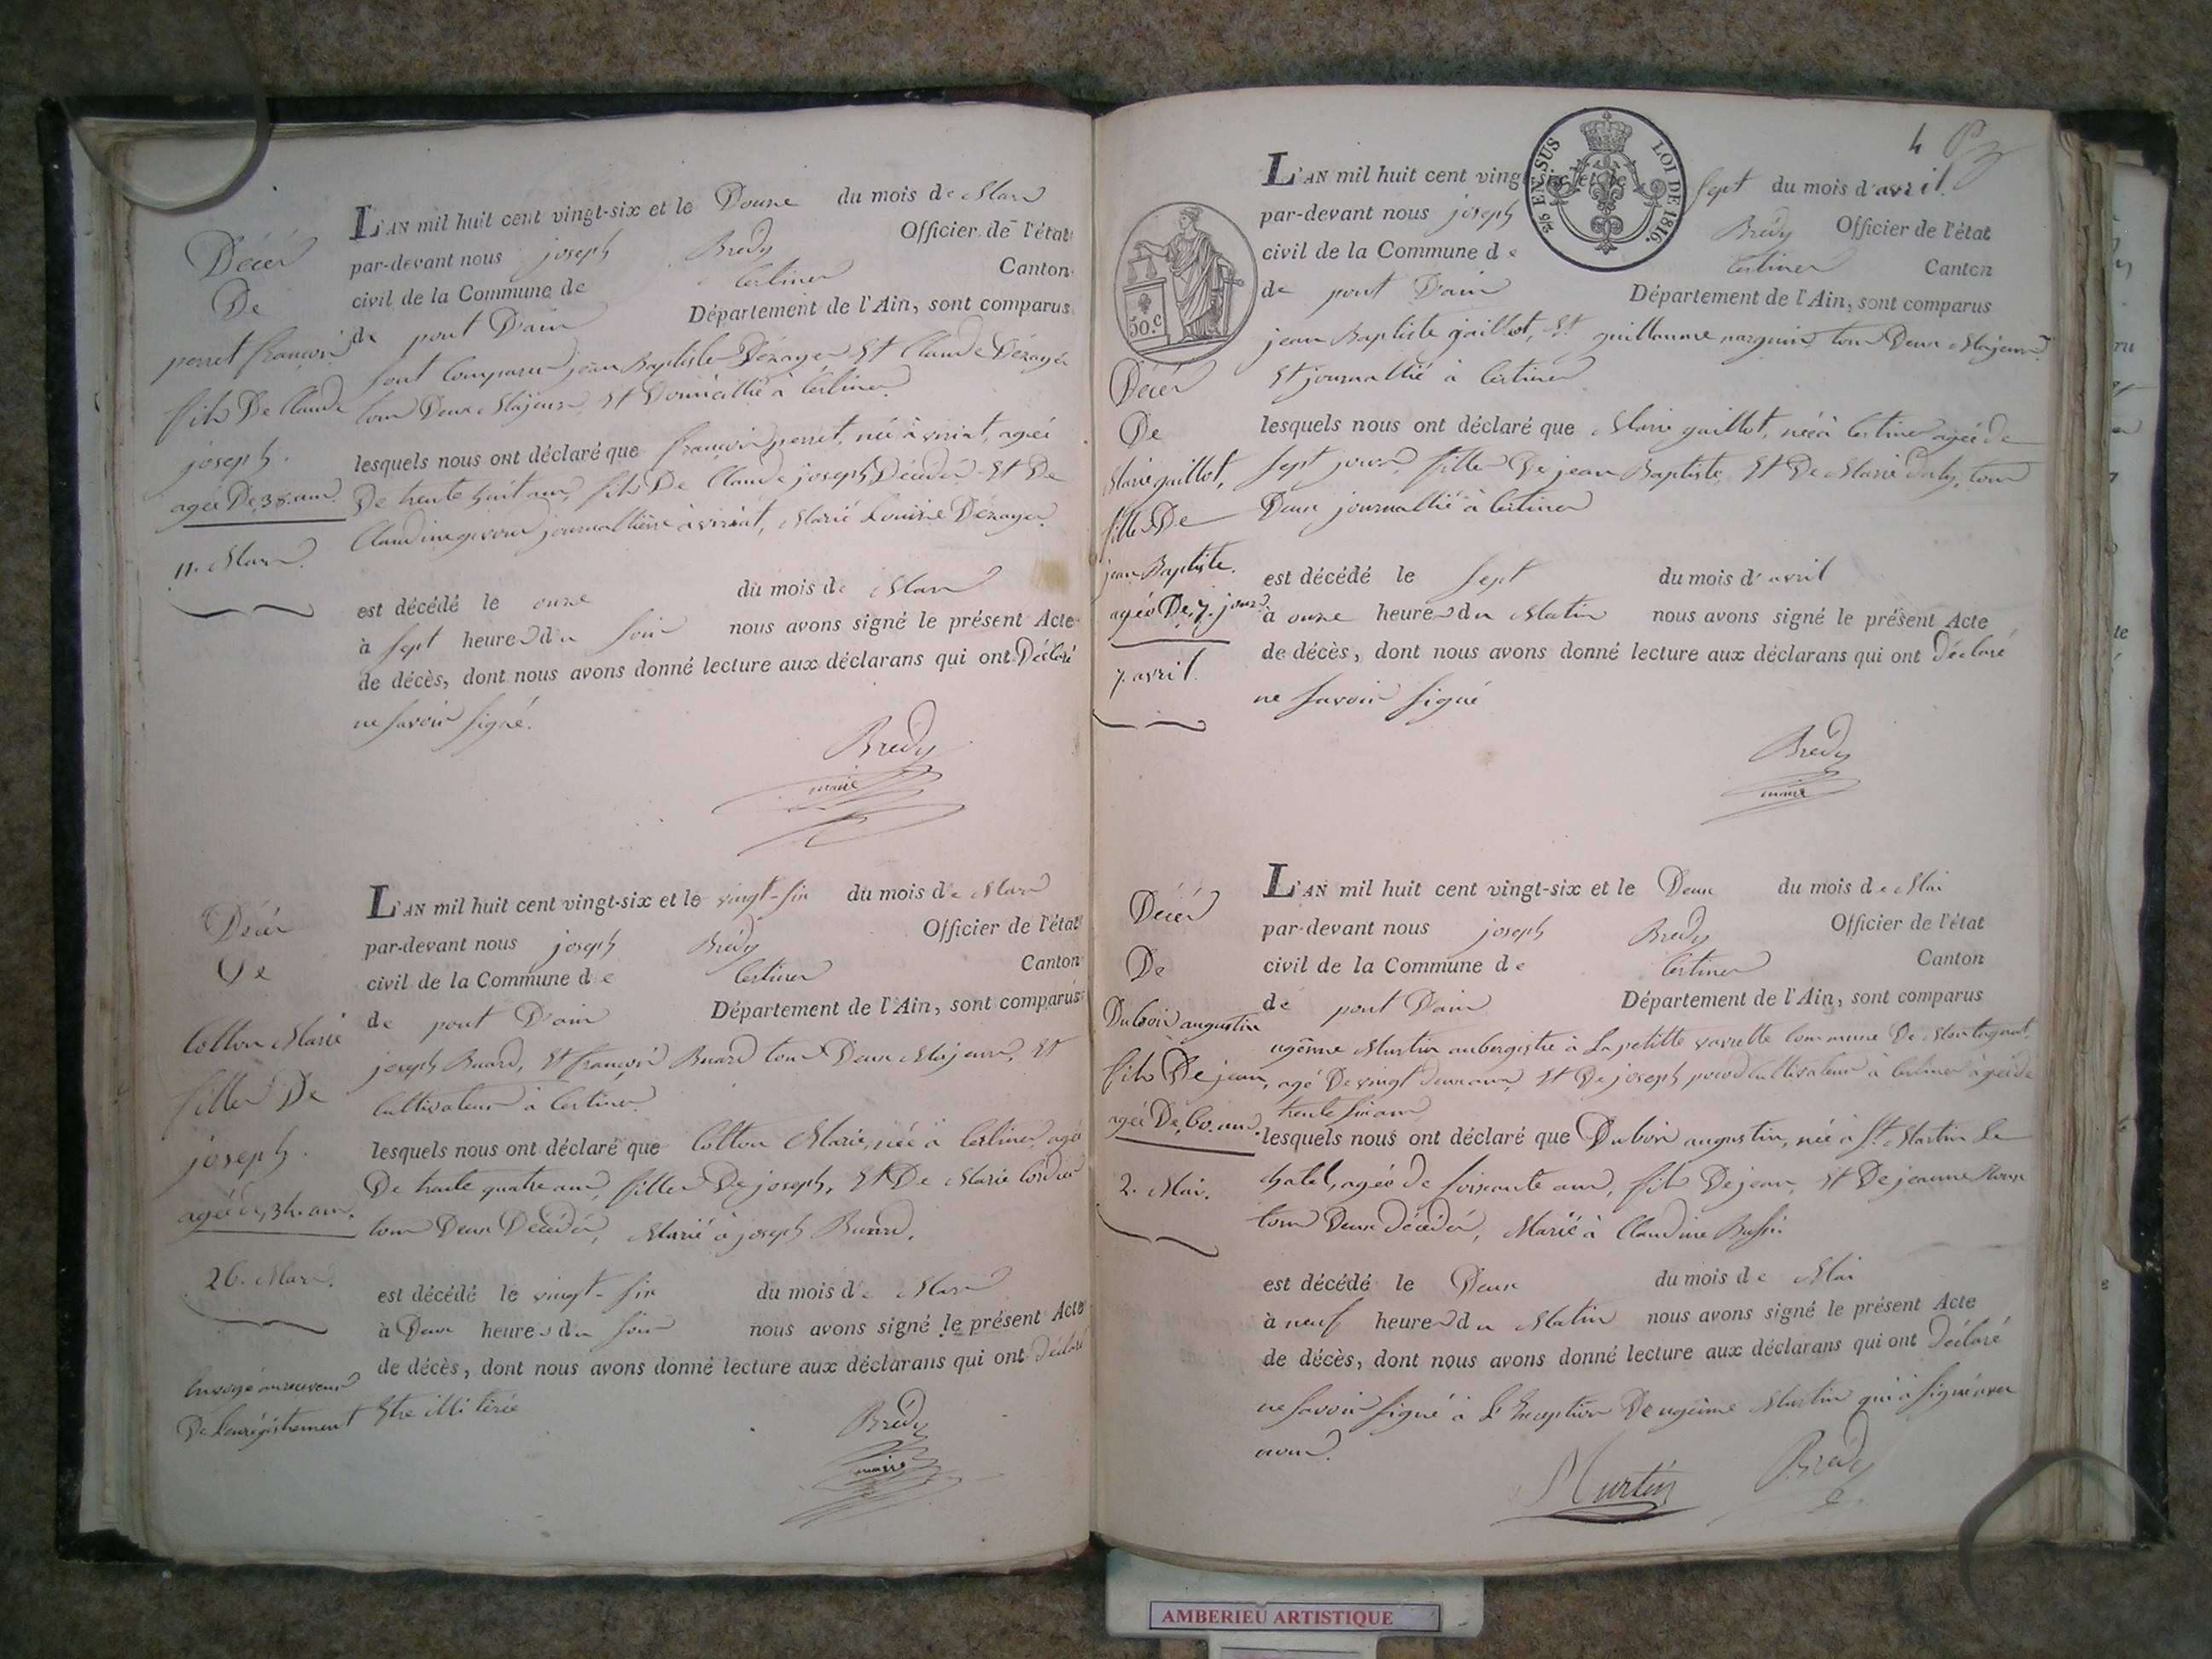 Décès
De
perret françois
fils De Claude
joseph.
agée De 38. ans.
11. Mars.
L'AN mil huit cent vingt-six et le Douze du mois de Mars
par-devant nous joseph Bredy Officier de l'état
civil de la Commune de Certines Canton
de pont D'ain Département de l'Ain, sont comparus
sont Comparus jean Baptiste Dézayes Et Claude Dézayes
tous Deux Majeurs, Et Domicillié à Certines.
lesquels nous ont déclaré que françois perret, née à viriat, agée
De trente huit ans, fils De Claude joseph Décédés Et De
Claudine journallière à viriat, Marié Louise Dézayes.
est décédé le onze du mois de Mars
à sept heures du soir nous avons signé le présent Acte
de décès, dont nous avons donné lecture aux déclarans qui ont Déclaré
ne savoir signé.
Bredy
maire
Décès
De
Colton Marie
fille De
joseph.
agée de, 34. ans.
26. Mars.
Envoyé au receveur
De L'enrégistrement
L'AN mil huit cent vingt-six et le vingt-six du mois de Mars
par-devant nous joseph Bredy Officier de l'état
civil de la Commune de Certines Canton
de pont D'ain Département de l'Ain, sont comparus
joseph Buard, Et françois Buard tous Deux Majeurs, Et
Cultivateurs à Certines.
lesquels nous ont déclaré que Colton Marie, née à Certines, agée
De trente quatre ans, fille De joseph, Et De Marie Cordier
tous Deux Décédés, Marié à joseph Buard.
est décédé le vingt-six du mois de Mars
à Deux heures du soir nous avons signé le présent Acte
de décès, dont nous avons donné lecture aux déclarans qui ont déclaré
Etre illitérée
Bredy
maire
4
3/5 EN SUS LOI DE 1816.
50.c
Décès
De
Marie gaillot,
fille De
jean Baptiste.
agée De, 7. jours
7. avril.
L'AN mil huit cent vingt-six et le sept du mois d'avril.
par-devant nous joseph Brédy Officier de l'état
civil de la Commune de Certines Canton
de pont D'ain Département de l'Ain, sont comparus
jean Baptiste gaillot, Et guillaume tous Deux Majeurs
Et journallié à Certines
lesquels nous ont déclaré que Marie gaillot, née à Certines agée de
sept jours, fille De jean Baptiste, Et De Marie tous
Deux journallié à Certines
est décédé le sept du mois d'avril
à onze heures du Matin nous avons signé le présent Acte
de décès, dont nous avons donné lecture aux déclarans qui ont déclaré
ne savoir signé
Bredy
maire
Décès
De
Dubois augustin
fils De jean,
agée De, 60. ans.
2. Mai.
L'AN mil huit cent vingt-six et le Deux du mois de Mai
par-devant nous joseph Bredy Officier de l'état
civil de la Commune de Certines Canton
de pont D'ain Département de l'Ain, sont comparus
ugênne Martin aubergistre à La petitte varrette Commune De Montagnat,
agé De vingt deux ans, Et De joseph Cultivateur à Certines agée de
trente six ans
lesquels nous ont déclaré que Dubois augustin, née à St. Martin Le
chatel, agée de soixante ans, fils De jean, Et De jeanne
tous Deux décédés, Marié à Claudine
est décédé le Deux du mois de Mai
à neuf heures du Matin nous avons signé le présent Acte
de décès, dont nous avons donné lecture aux déclarans qui ont déclaré
ne savoir signé à L'Exception De ugênne Martin qui à signé avec
nous.
Martin Bredy
AMBERIEU ARTISTIQUE